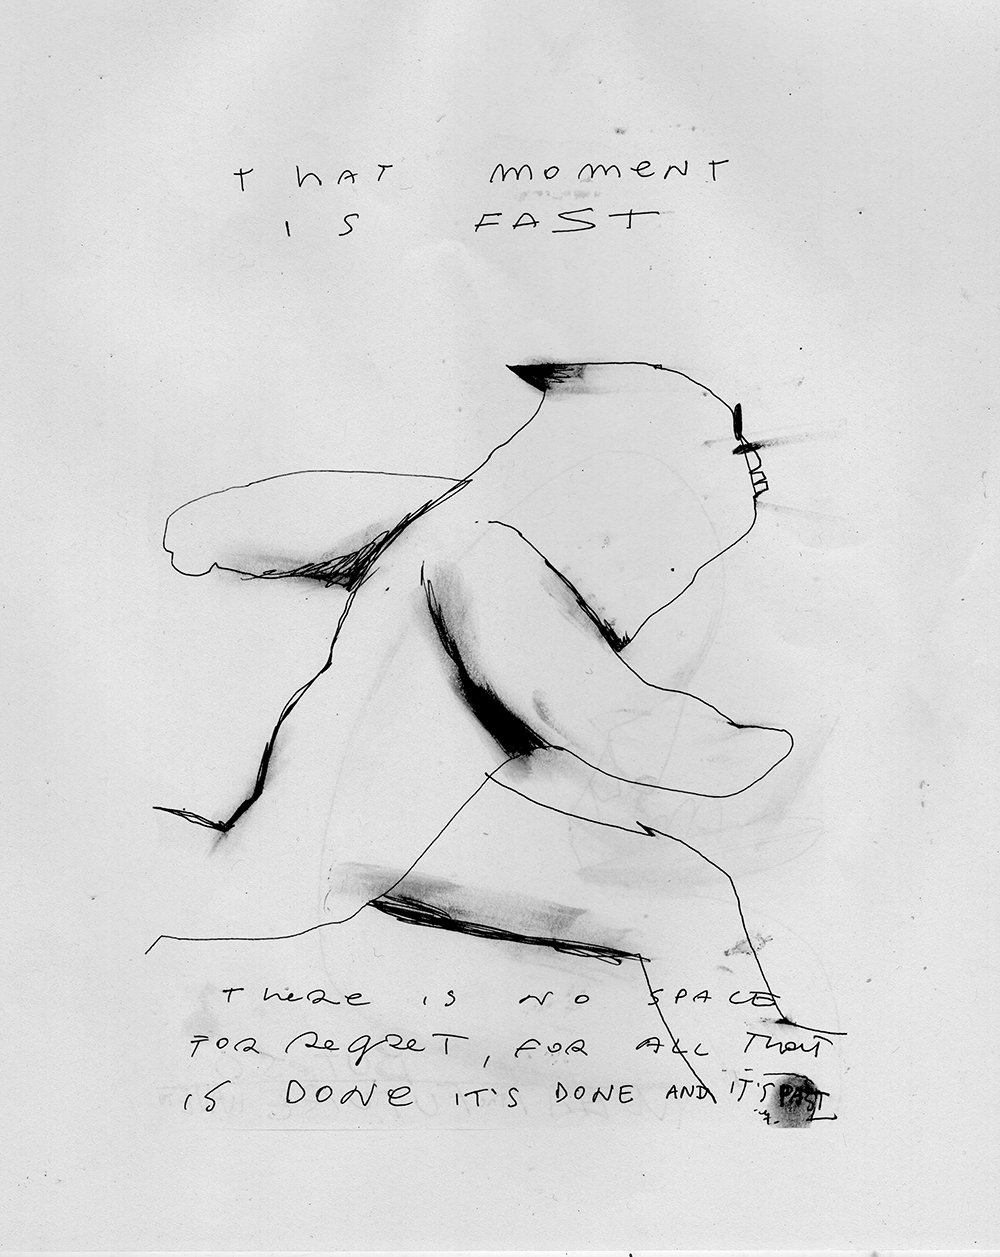 tHAT moment
IS FAST
THERE IS NO SPACE
FOR REGRET, FOR ALL THAT
IS DONE IT'S DONE AND IT'S PAST